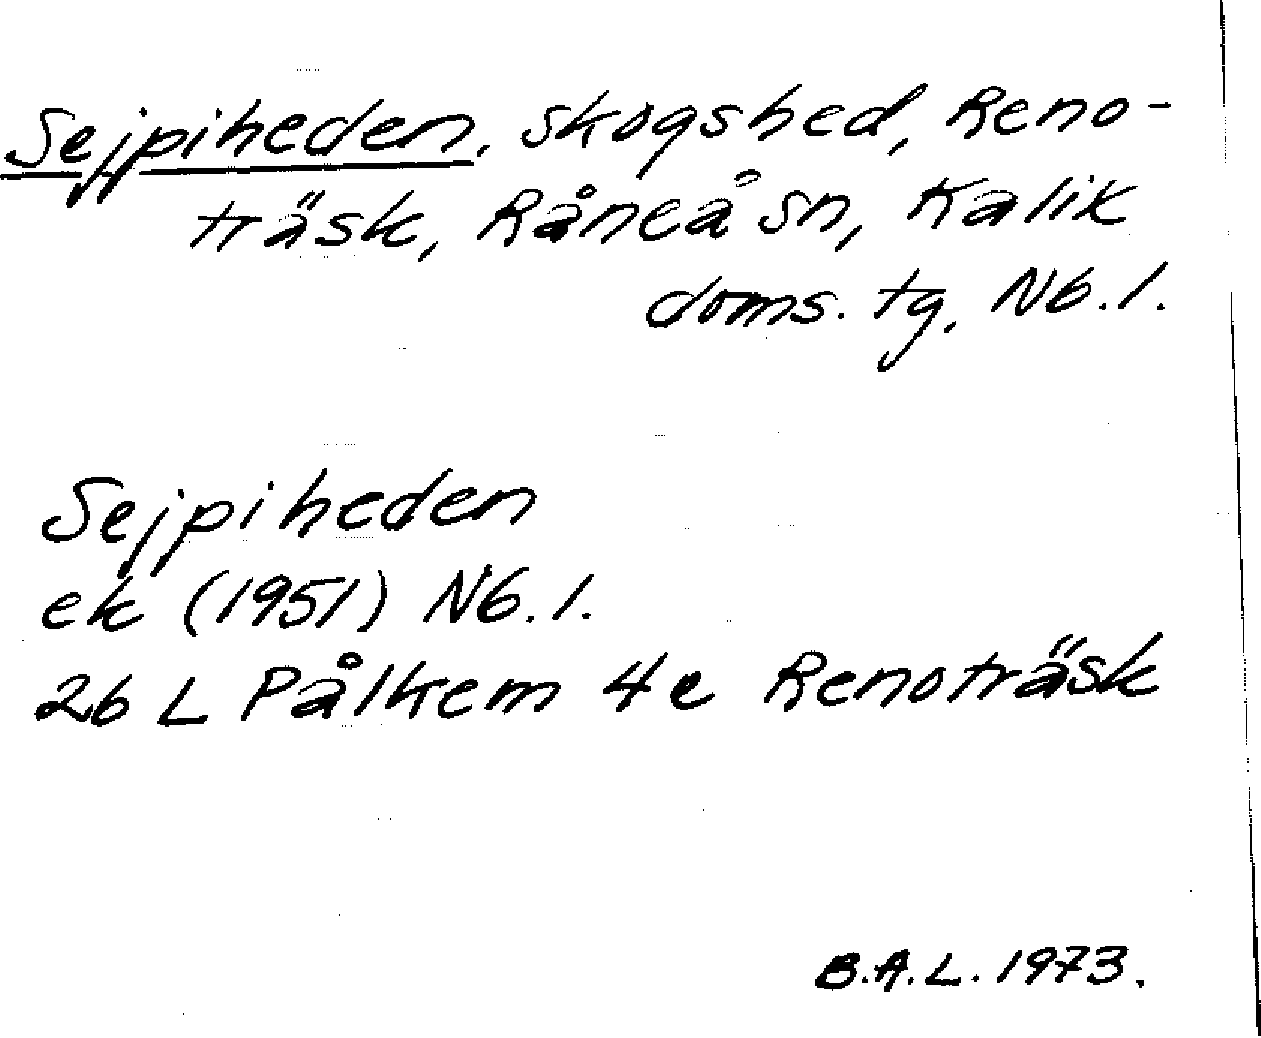 Sejpiheden, skogshed, Reno-
träsk, Råneå sn, Kalix
doms. tg, Nb. l.
Sejpiheden
ek (1951) Nb. l.
26 L Pålkem 4e Renoträsk
B.A.L. 1973.